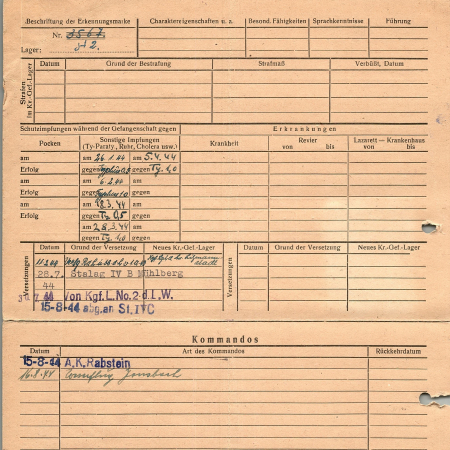 Beschriftung der Erkennungsmarke
Charaktereigenschaften u. a.
Besond. Fähigkeiten
Sprachkenntnisse
Führung
Nr.
Lager:
Strafen im Kr.-Gef.-Lager
Datum
Grund der Bestrafung
Strafmaß
Verbüßt, Datum
Schutzimpfungen während der Gefangenschaft gegen
Erkrankungen
Pocken
Sonstige Impfungen
(Ty-Paraty., Ruhr, Cholera usw.)
Krankheit
Revier
von bis
Lazarett — Krankenhaus
von bis
am am 26.1.44 am 5.4.44
Erfolg gegen gegen Ty. 1,0
am am 6.2.44 am
Erfolg gegen gegen
am am 18.3.44 am
Erfolg gegen Ty. 0,5 gegen
am 25.3.44 am
gegen Ty. 1,0 gegen
Versetzungen
Datum
Grund der Versetzung
Neues Kr.-Gef.-Lager
Versetzungen
Datum
Grund der Versetzung
Neues Kr.-Gef.-Lager
28.7. Stalag IV B Mühlberg
44
Von Kgf.L.No.2 d.L.W.
15-8-44 abg.an St.IVC
Kommandos
Datum
Art des Kommandos
Rückkehrdatum
15-8-44 A.K.Rabstein
16.8.44 Jonsbach